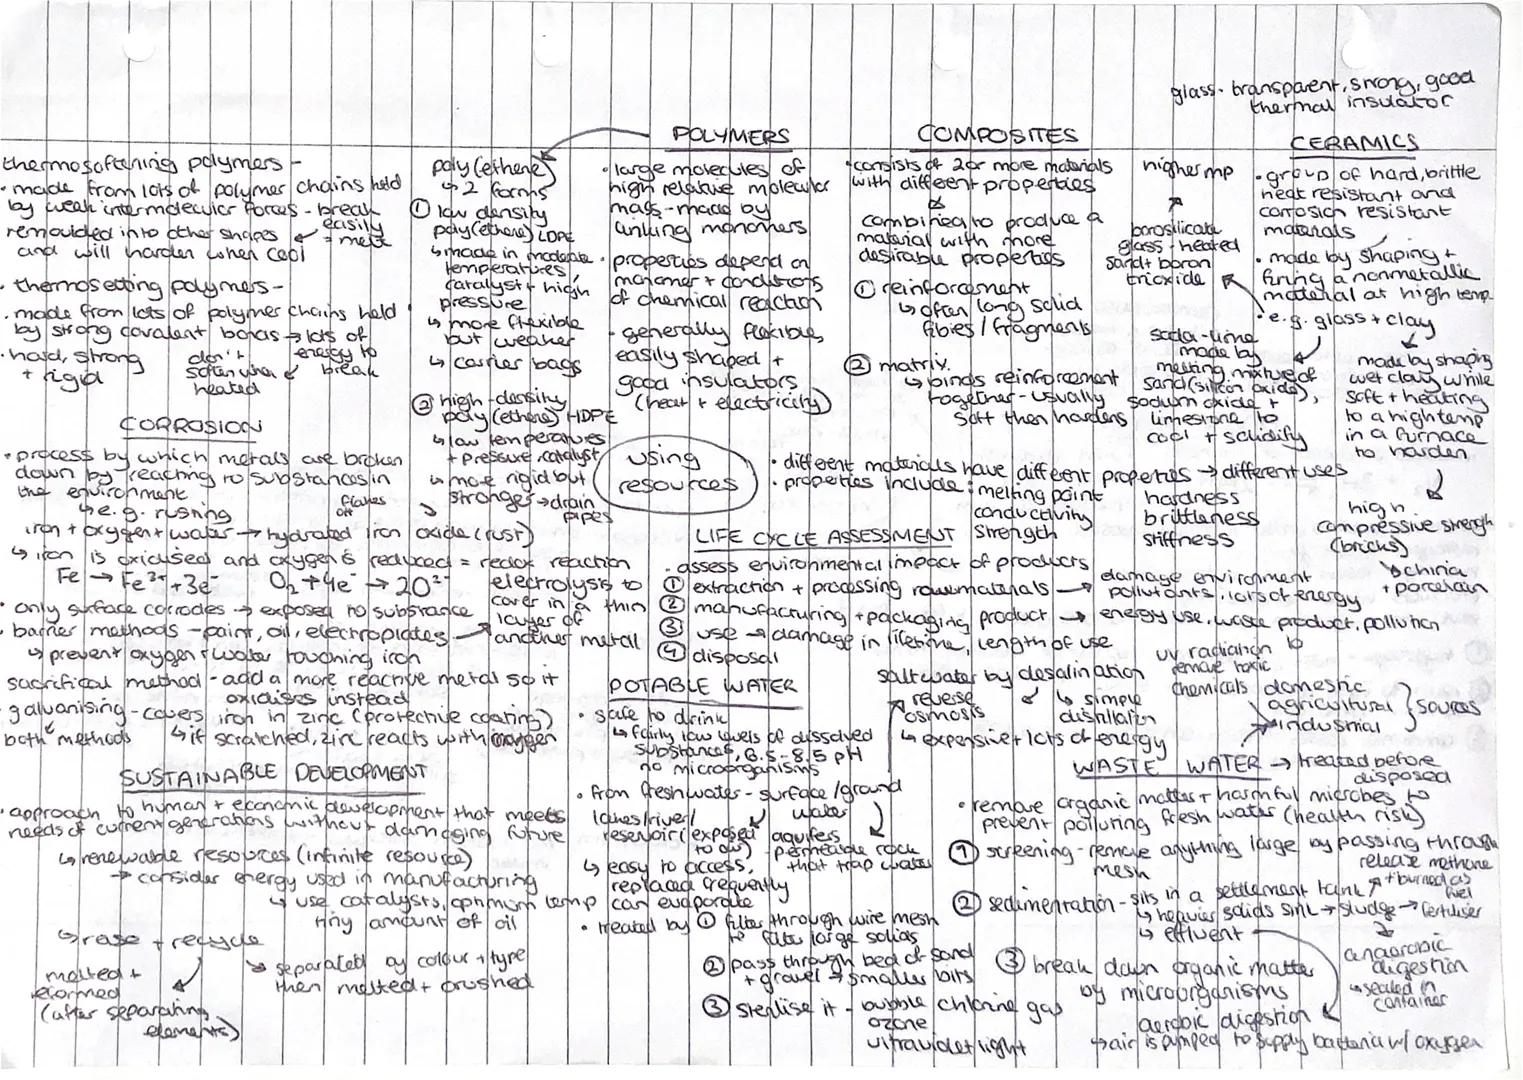 glass - transparent, strong, good
thermal insulator
POLYMERS
COMPOSITES
CERAMICS
thermosoftening polymers -
• made from lots of polymer chains held
by weak intermolecular forces - break
easily
= melt
remoulded into other shapes
and will harden when cool
• thermosetting polymers -
• made from lots of polymer chains held
by strong covalent bonds → lots of
energy to
break
• hard, strong
+ rigid
don't
soften when
heated
poly(ethene)
↳ 2 forms
① low density
poly(ethene) LDPE
↳ made in moderate
temperatures,
catalyst + high
pressure
↳ more flexible
but weaker
↳ carrier bags
② high-density
poly(ethene) HDPE
↳ low temperatures
+ pressure, catalyst
↳ more rigid but
stronger → drain
pipes
• large molecules of
high relative molecular
mass - made by
linking monomers
• properties depend on
monomer + conditions
of chemical reaction
• generally flexible,
easily shaped +
good insulators
(heat + electricity)
• consists of 2 or more materials
with different properties
combined to produce a
material with more
desirable properties
① reinforcement
↳ often long solid
fibres / fragments
② matrix
↳ binds reinforcement
together - usually
soft then hardens
higher mp
borosilicate
glass - heated
sand + boron
trioxide
soda-lime
made by
melting mixture of
sand (silicon oxide),
sodium oxide +
limestone to
cool + solidify
• group of hard, brittle
heat resistant and
corrosion resistant
materials
• made by shaping +
firing a nonmetallic
material at high temp
• e.g. glass + clay
made by shaping
wet clay while
soft + heating
to a high temp
in a furnace
to harden
high
compressive strength
(bricks)
↳ china
+ porcelain
using
resources
• different materials have different properties → different uses
• properties include: melting point
conductivity
strength
hardness
brittleness
stiffness
CORROSION
• process by which metals are broken
down by reacting to substances in
the environment
↳ e.g. rusting
flakes
off
iron + oxygen + water → hydrated iron oxide (rust)
↳ iron is oxidised and oxygen is reduced = redox reaction
Fe → Fe³⁺ + 3e⁻ O₂ + 4e⁻ → 2O²⁻
• only surface corrodes → exposed to substance
• barrier methods - paint, oil, electroplates
electrolysis to
cover in a thin
layer of
another metal
↳ prevent oxygen + water touching iron
sacrifical method - add a more reactive metal so it
oxidises instead
• galvanising - covers iron in zinc (protective coating)
both methods
↳ if scratched, zinc reacts with oxygen
LIFE CYCLE ASSESSMENT
• assess environmental impact of products
① extraction + processing raw materials → damage environment
pollutants, lots of energy
② manufacturing + packaging product → energy use, waste product, pollution
③ use → damage in lifetime, length of use
④ disposal
POTABLE WATER
• safe to drink
↳ fairly low levels of dissolved
substances, 6.5-8.5 pH
no microorganisms
• from freshwater - surface / ground
water
lakes/river/
reservoir (exposed
to air)
↳ easy to access,
replaced frequently
can evaporate
aquifers
permeable rock
that trap water
salt water by desalination
reverse
osmosis
↳ simple
distillation
↳ expensive + lots of energy
• treated by ① filter through wire mesh
to filter large solids
② pass through bed of sand
+ gravel → smaller bits
③ sterilise it - bubble chlorine gas
ozone
ultraviolet light
uv radiation to
remove toxic
chemicals
domestic
agricultural
industrial
sources
WASTE WATER → treated before
disposed
• remove organic matter + harmful microbes to
prevent polluting fresh water (health risk)
① screening - remove anything large by passing through
mesh
② sedimentation - sits in a settlement tank
↳ heavier solids sink → sludge → fertiliser
↳ effluent
release methane
+ burned as
fuel
anaerobic
digestion
↳ sealed in
container
③ break down organic matter
by microorganisms
aerobic digestion
↳ air is pumped to supply bacteria w/ oxygen
SUSTAINABLE DEVELOPMENT
• approach to human + economic development that meets
needs of current generations without damaging future
↳ renewable resources (infinite resource)
→ consider energy used in manufacturing
↳ use catalysts, optimum temp
tiny amount of oil
↳ reuse + recycle
melted +
reformed
(after separating
elements)
separated by colour + type
then melted + crushed